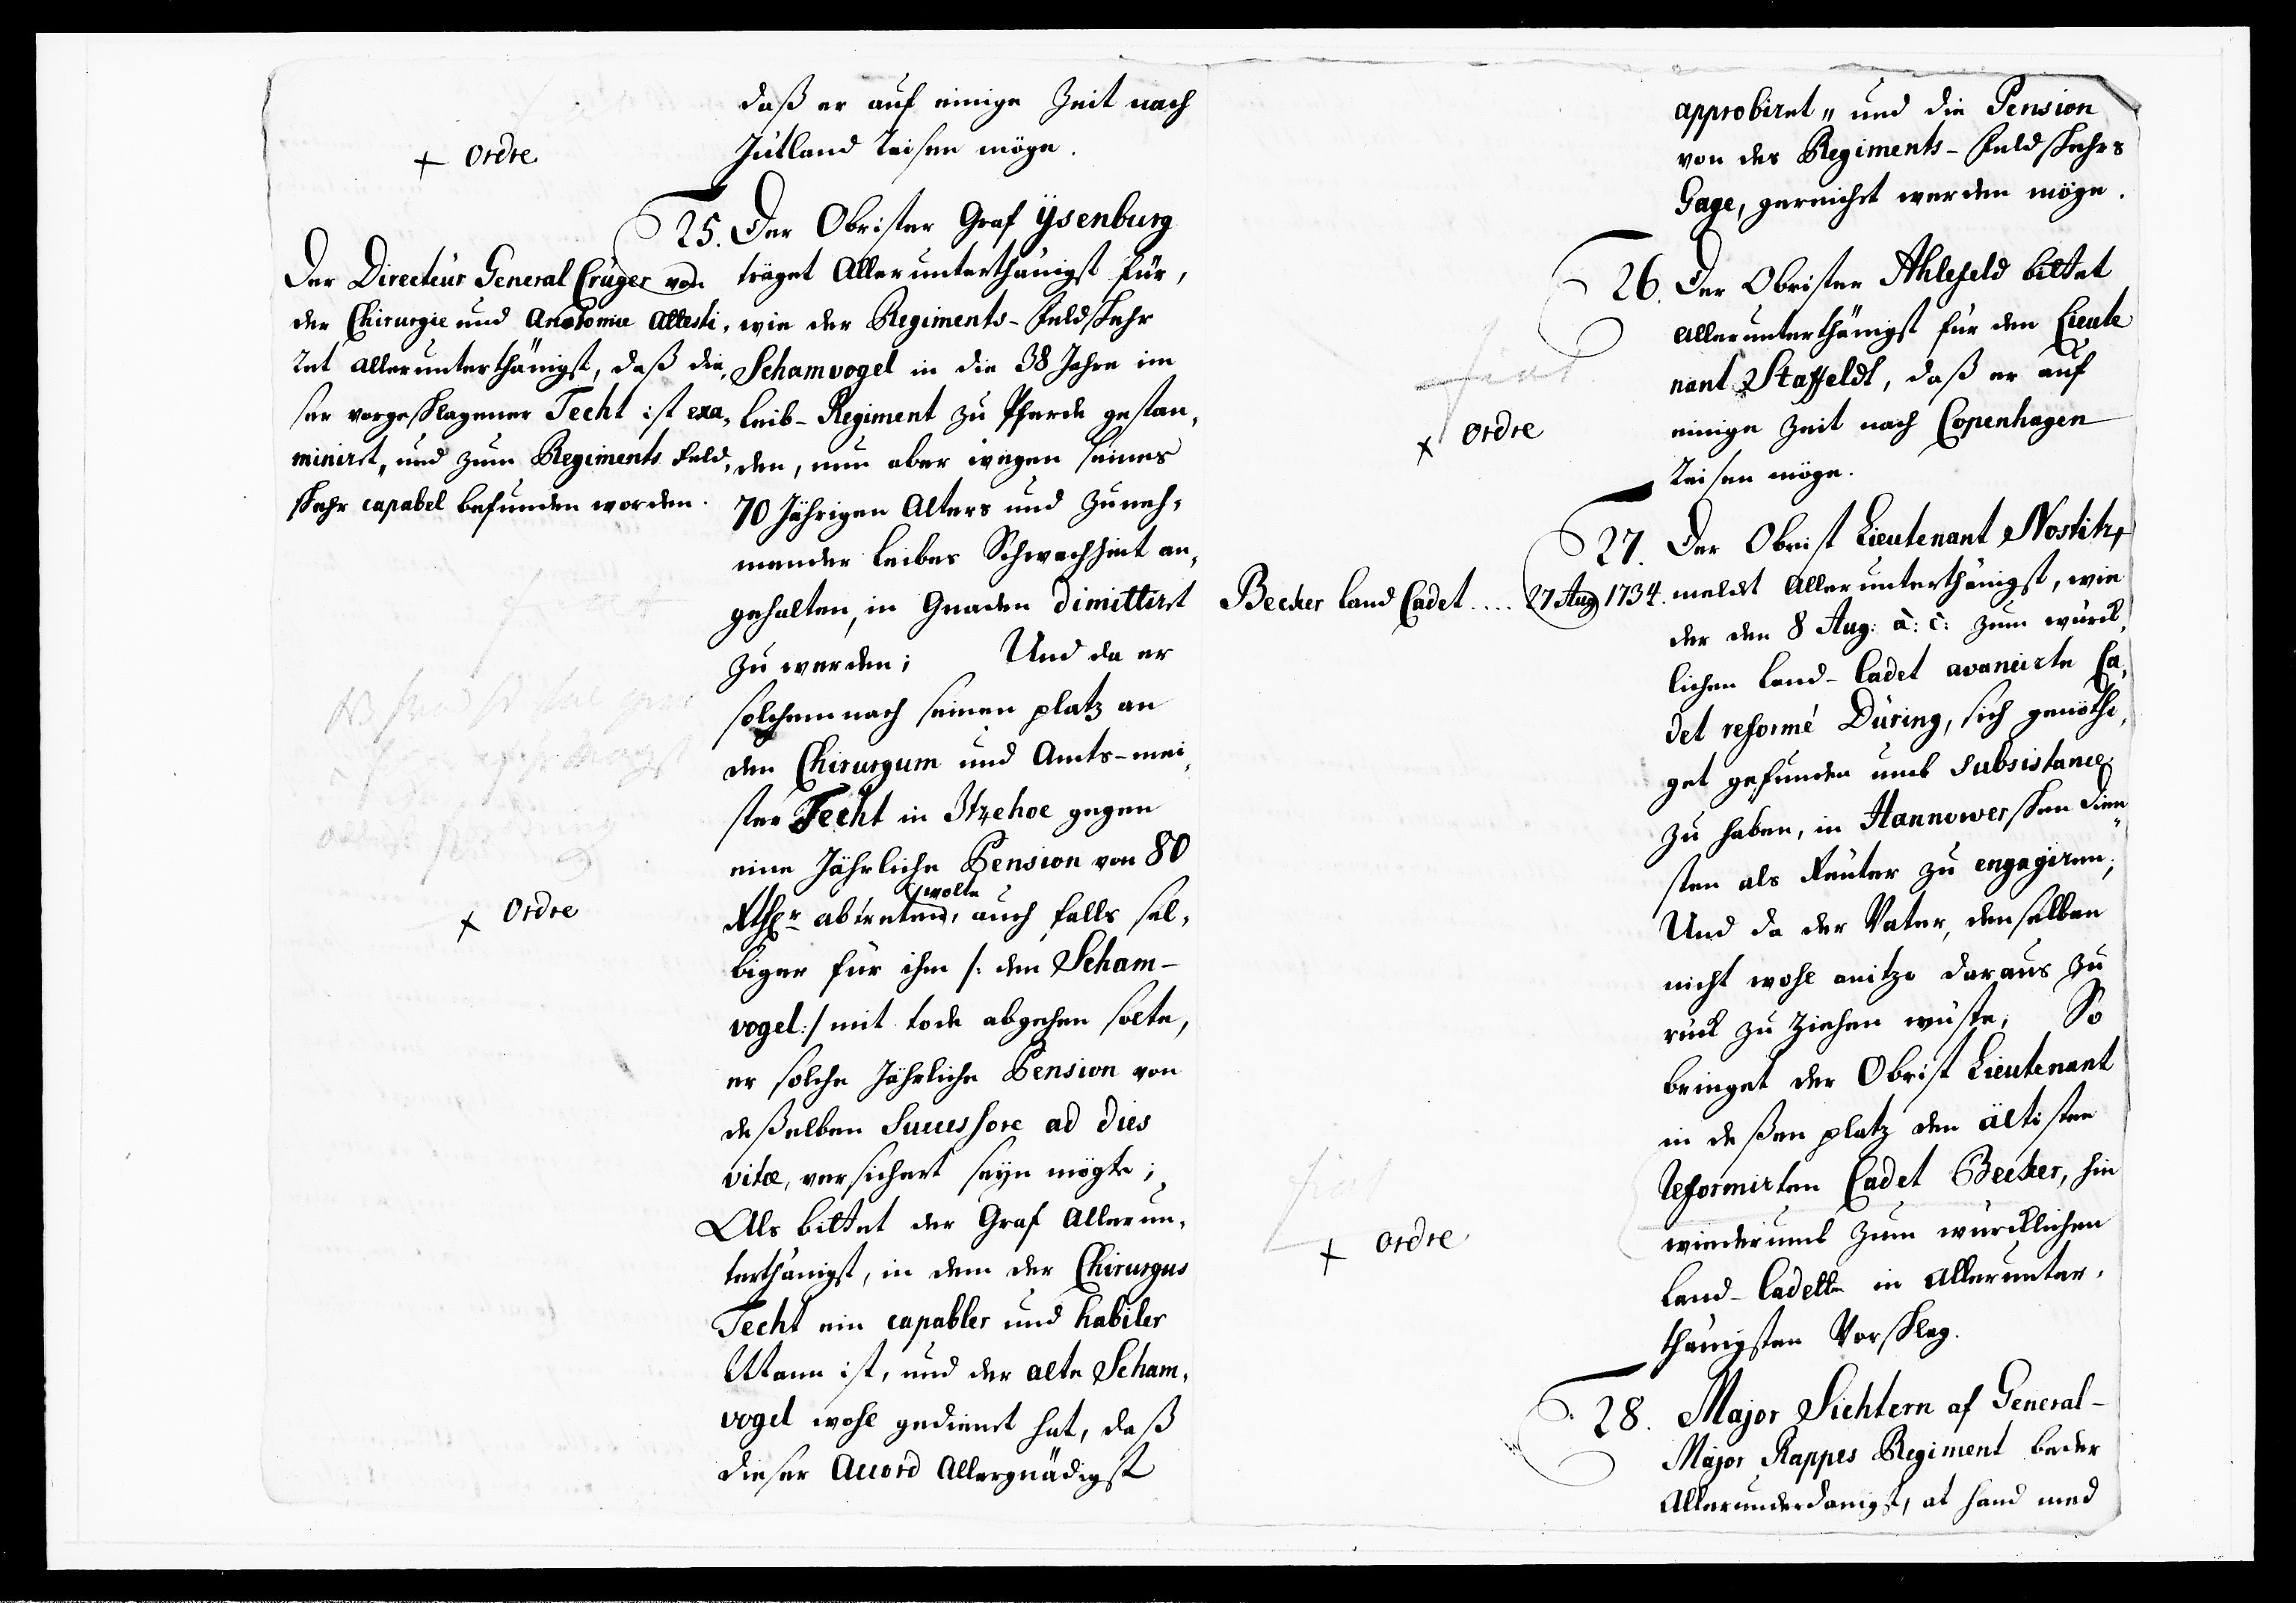 daß er auf einige Zeit nach
Jütland reisen möge.
+ Ordre
25. Der Obrister Graf Ÿsenburg
träget Allerunterthänigst für,
wie der Regiments-Feldskehr
Schamvogel in die 38 Jahre im
Leib-Regiment zu Pferde gestan,
den, nun aber wegen seines
70 Jährigen Alters und zuneh,
mender Leibes Schwachheit an,
gehalten, in Gnaden dimittiret
zu werden; Und da er
solchemnach seinen platz an
den Chirurgum und Amts-mei,
ster Fecht in Itzehoe gegen
eine Jährliche Pension von 80
Rthlr abtreten wolte, auch falls sel,
biger für ihm /: den Scham-
vogel :/ mit tode abgehen solte,
er solche Jährliche Pension von
deßelben Successore ad dies
vitæ, versichert seyn mögte;
Als bittet der Graf Allerun,
terthänigst, in dem der Chirurgus
Fecht ein capabler und habiler
Mann ist, und der alte Scham,
vogel wohl gedienet hat, daß
dieser Accord Allergnädigst
Der Directeur General Crüger von
der Chirurgie und Anatomie Attesti,
ret Allerunterthänigst, daß die,
ser vorgeslagener Fecht ist exa,
miniret, und zum Regiments Feld,
skehr capabel befunden worden.
+ Ordre
approbiret, und die Pension
von des Regiments-Feldskehrs
Gage, gereichet werden möge.
26. Der Obrister Ahlefeld bittet
Allerunterthänigst für den Lieute
nant Staffeldt, daß er auf
einige Zeit nach Copenhagen
reisen möge.
fiat
+ Ordre
27. Der Obrist Lieutenant Nostitz,
meldet Allerunterthänigst, wie
der den 8 Aug: a: c: zum würck,
lichen Land-Cadet avancirte Ca,
det reformé Düring, sich genöthi,
get gefunden umb Subsistance
zu haben, in Hannowersken Dien
sten als Reuter zu engagiren;
Und da der Vater, denselben
nicht wohl anitzo daraus zu
rück zu ziehen wüste, So
bringet der Obrist Lieutenant
in deßen platz den ältisten
Reformirten Cadet Becker, hin
wiederumb zum würcklichen
Land-Cadetten in Allerunter,
thänigsten Vorslag.
Becker Land Cadet .... 27 Aug 1734.
fiat
+ Ordre
28. Major Sichtern af General-
Major Rappes Regiment beder
Allerunderdanigst, at hand med